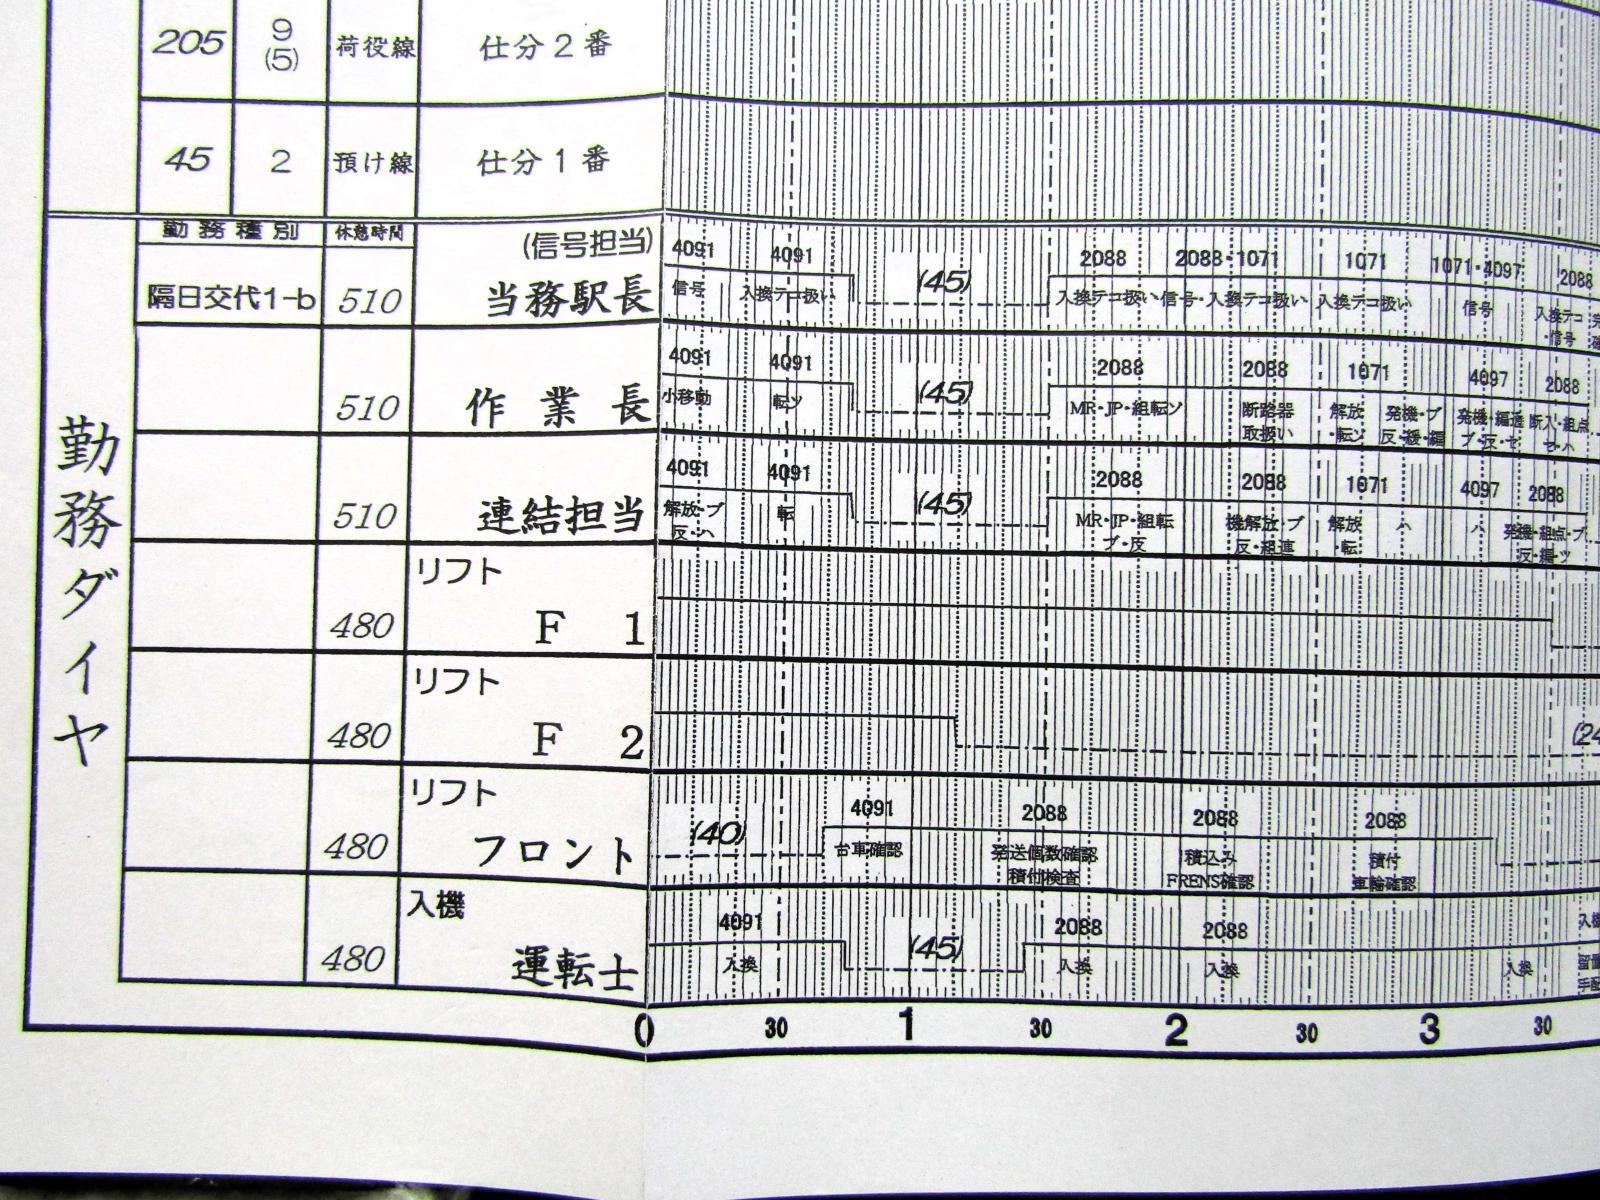 205 9 荷役線 仕分2番
(5)
45 2 預け線 仕分1番
勤務ダイヤ
勤務種別 休憩時間
隔日交代1-b 510 (信号担当)
当務駅長
4091 4091 (45) 2088 2088・1071 1071 1071・4097 2088
信号 入換テコ扱い 入換テコ扱い 信号・入換テコ扱い 入換テコ扱い 信号 入換テコ
・信号
510 作業長
4091 4091 (45) 2088 2088 1071 4097 2088
小移動 転ツ MR・JP・組転ツ 断路器 解放 発機・ブ 発機・編通 断入・組点
取扱い ・転ツ 反・緩・編 ブ・反・セ
510 連結担当
4091 4091 (45) 2088 2088 1071 4097 2088
解放・ブ 転 MR・JP・組転 機解放・ブ 解放 ハ ハ 発機・組点・ブ
反・ハ ブ・反 反・組連 ・転 反・編・ツ
リフト
480 F 1
リフト
480 F 2
(24
リフト
480 フロント
(40) 4091 2088 2088 2088
台車確認 発送個数確認 積込み 積付
積付検査 FRENS確認 車輪確認
入機
480 運転士
4091 (45) 2088 2088
入換 入換 入換 入換
0 30 1 30 2 30 3 30